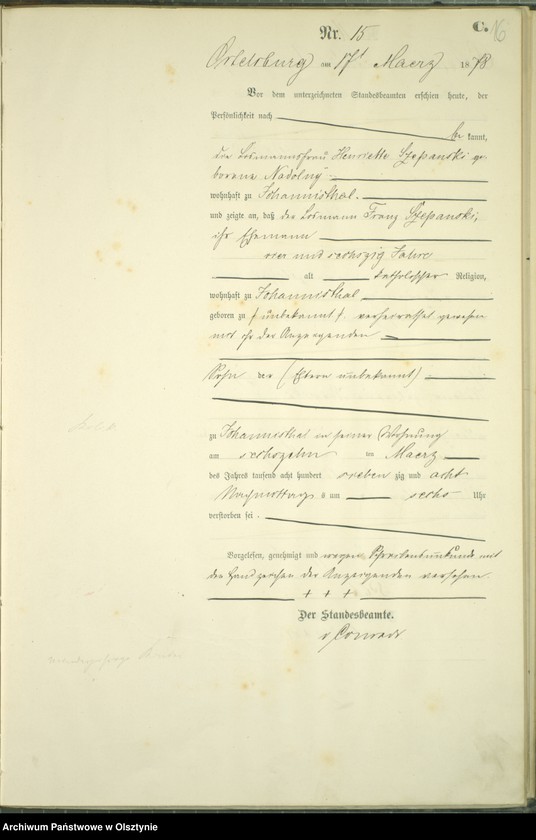 C. 16
Nr. 15
Ortelsburg am 17t Maerz 1878
Vor dem unterzeichneten Standesbeamten erschien heute, der
Persönlichkeit nach
be kannt,
die Losmannsfrau Henriette Szepanski ge-
borene Nadolny
wohnhaft zu Johannisthal.
und zeigte an, daß der Losmann Franz Szepanski,
ihr Ehemann
vier und sechszig Jahre
alt katholischer Religion,
wohnhaft zu Johannisthal
geboren zu (unbekannt), verheirathet gewesen
mit ihr der Anzeigenden
Sohn der (Eltern unbekannt)
zu Johannisthal in seiner Wohnung
am sechszehn ten Maerz
des Jahres tausend acht hundert sieben zig und acht
Nachmittags um sechs Uhr
verstorben sei.
Vorgelesen, genehmigt und wegen Schreibensunkunde mit
den Handzeichen der Anzeigenden versehen.
+ + +
Der Standesbeamte.
v. Conrady
Archiwum Państwowe w Olsztynie